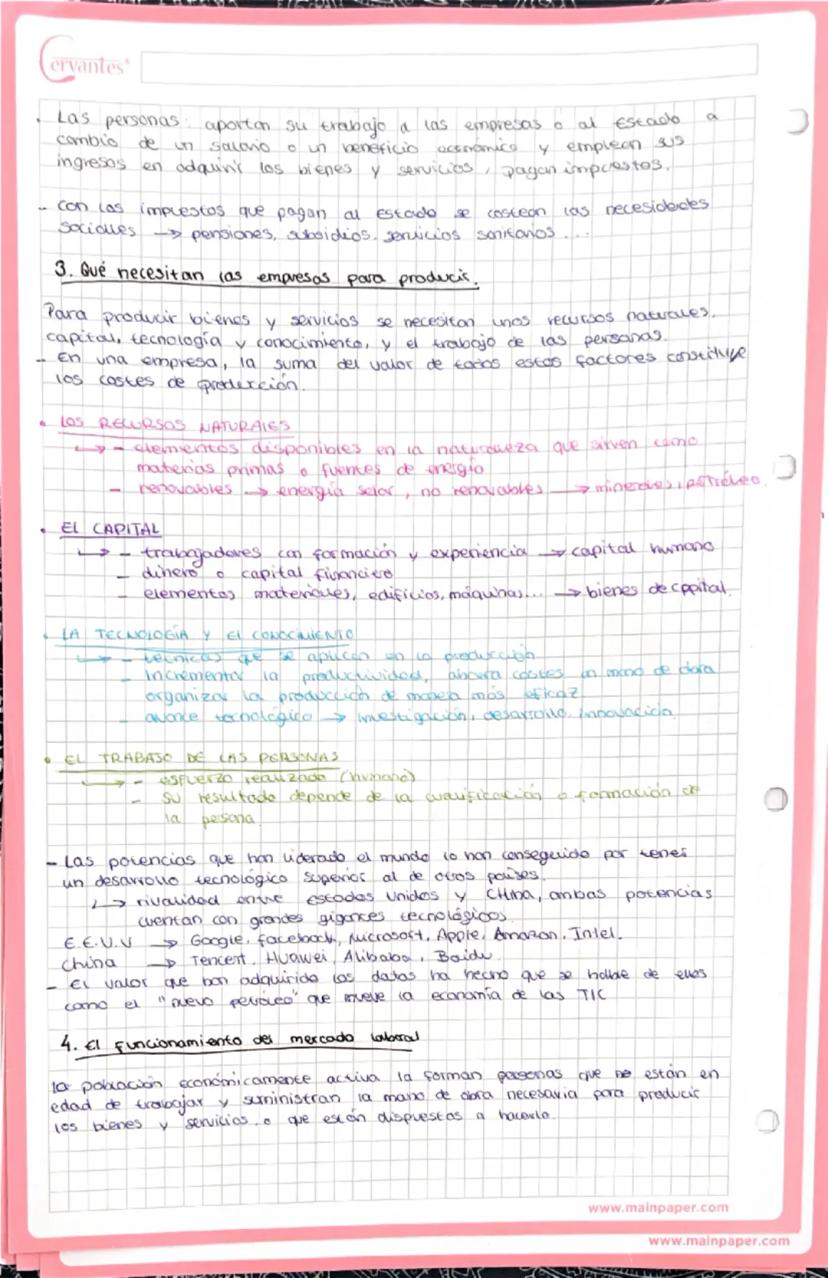 Cervantes®
. Las personas: aportan su trabajo a las empresas o al Estado a
cambio de un salario o un beneficio económico y emplean sus
ingresos en adquirir los bienes y servicios, pagan impuestos.
- Con los impuestos que pagan al estado se costean las necesidades
sociales → pensiones, subsidios, servicios sanitarios...
3. Qué necesitan las empresas para producir.
Para producir bienes y servicios se necesitan unos recursos naturales,
capital, tecnología y conocimiento, y el trabajo de las personas.
- En una empresa, la suma del valor de todos estos factores constituye
los costes de producción.
• LOS RECURSOS NATURALES
↳ - elementos disponibles en la naturaleza que sirven como
materias primas o fuentes de energía
- renovables → energía solar, no renovables → minerales, petróleo.
• EL CAPITAL
↳ - trabajadores con formación y experiencia → capital humano
- dinero o capital financiero
- elementos materiales, edificios, máquinas... → bienes de capital.
• LA TECNOLOGÍA Y El CONOCIMIENTO
↳ - técnicas que se aplican en la producción
- Incrementar la productividad, ahorra costes en mano de obra
organizar la producción de manera más eficaz
- avance tecnológico → investigación, desarrollo, innovación.
• EL TRABAJO DE LAS PERSONAS
↳ - esfuerzo realizado (humano)
- su resultado depende de la cualificación o formación de
la persona
- Las potencias que han liderado el mundo lo han conseguido por tener
un desarrollo tecnológico superior al de otros países.
↳ rivalidad entre Estados Unidos y China, ambas potencias
cuentan con grandes gigantes tecnológicos
E.E.U.U → Google, facebook, Microsoft, Apple, Amazon, Intel.
China → Tencent, Huawei, Alibaba, Baidu.
- El valor que han adquirido los datos ha hecho que se hable de ellos
como el "nuevo petróleo" que mueve la economía de las TIC
4. El funcionamiento del mercado laboral
La población económicamente activa la forman personas que no están en
edad de trabajar y suministran la mano de obra necesaria para producir
los bienes y servicios, o que están dispuestas a hacerlo.
www.mainpaper.com
www.mainpaper.com